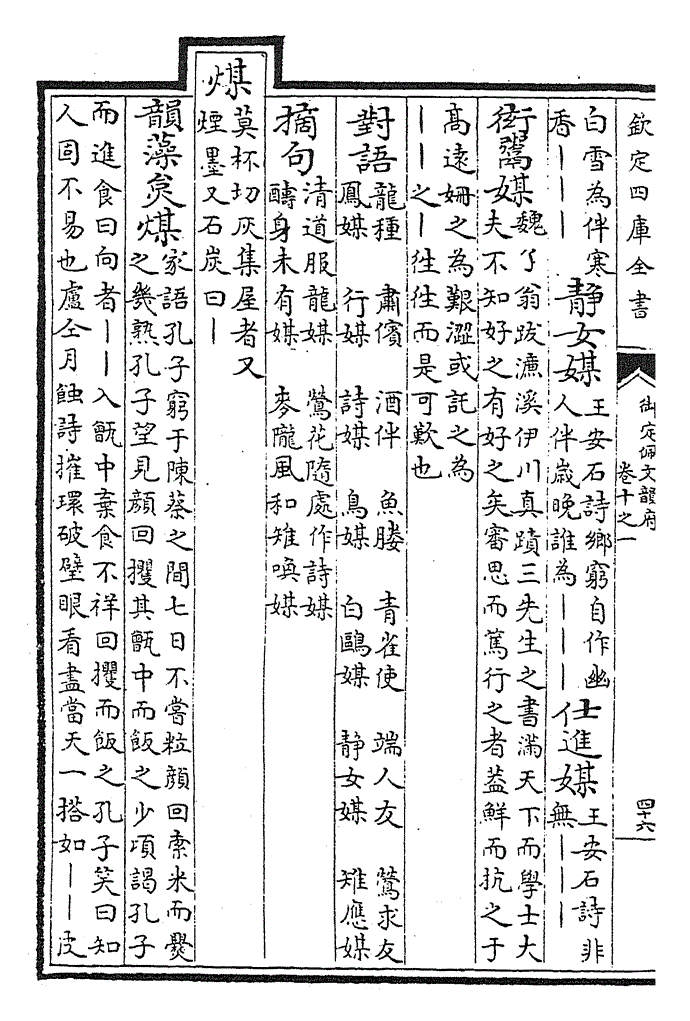 欽定四庫全書
御定佩文韻府
卷十之一
四十六
白雪為伴寒
香｜｜｜
靜女媒
王安石詩鄉窮自作幽
人伴歲晚誰為｜｜｜
仕進媒
王安石詩非
無｜｜｜
衒鬻媒
魏了翁跋濂溪伊川真蹟三先生之書滿天下而學士大
夫不知好之有好之矣審思而篤行之者葢鮮而抗之于
高遠姍之為艱澀或託之為
｜｜之｜往往而是可歎也
對語
龍種 肅儐 酒伴 魚媵 青雀使 端人友 鶯求友
鳳媒 行媒 詩媒 鳥媒 白鷗媒 靜女媒 雉應媒
摘句
清道服龍媒 鶯花隨處作詩媒
醻身未有媒 麥隴風和雉喚媒
煤
莫杯切灰集屋者又
煙墨又石炭曰｜
韻藻
炱煤
家語孔子窮于陳蔡之間七日不嘗粒顔回索米而爨
之幾熟孔子望見顔回攫其甑中而飯之少項謁孔子
而進食曰向者｜｜入甑中棄食不祥回攫而飯之孔子笑曰知
人固不易也盧仝月蝕詩摧環破璧眼看盡當天一搭如｜｜皮